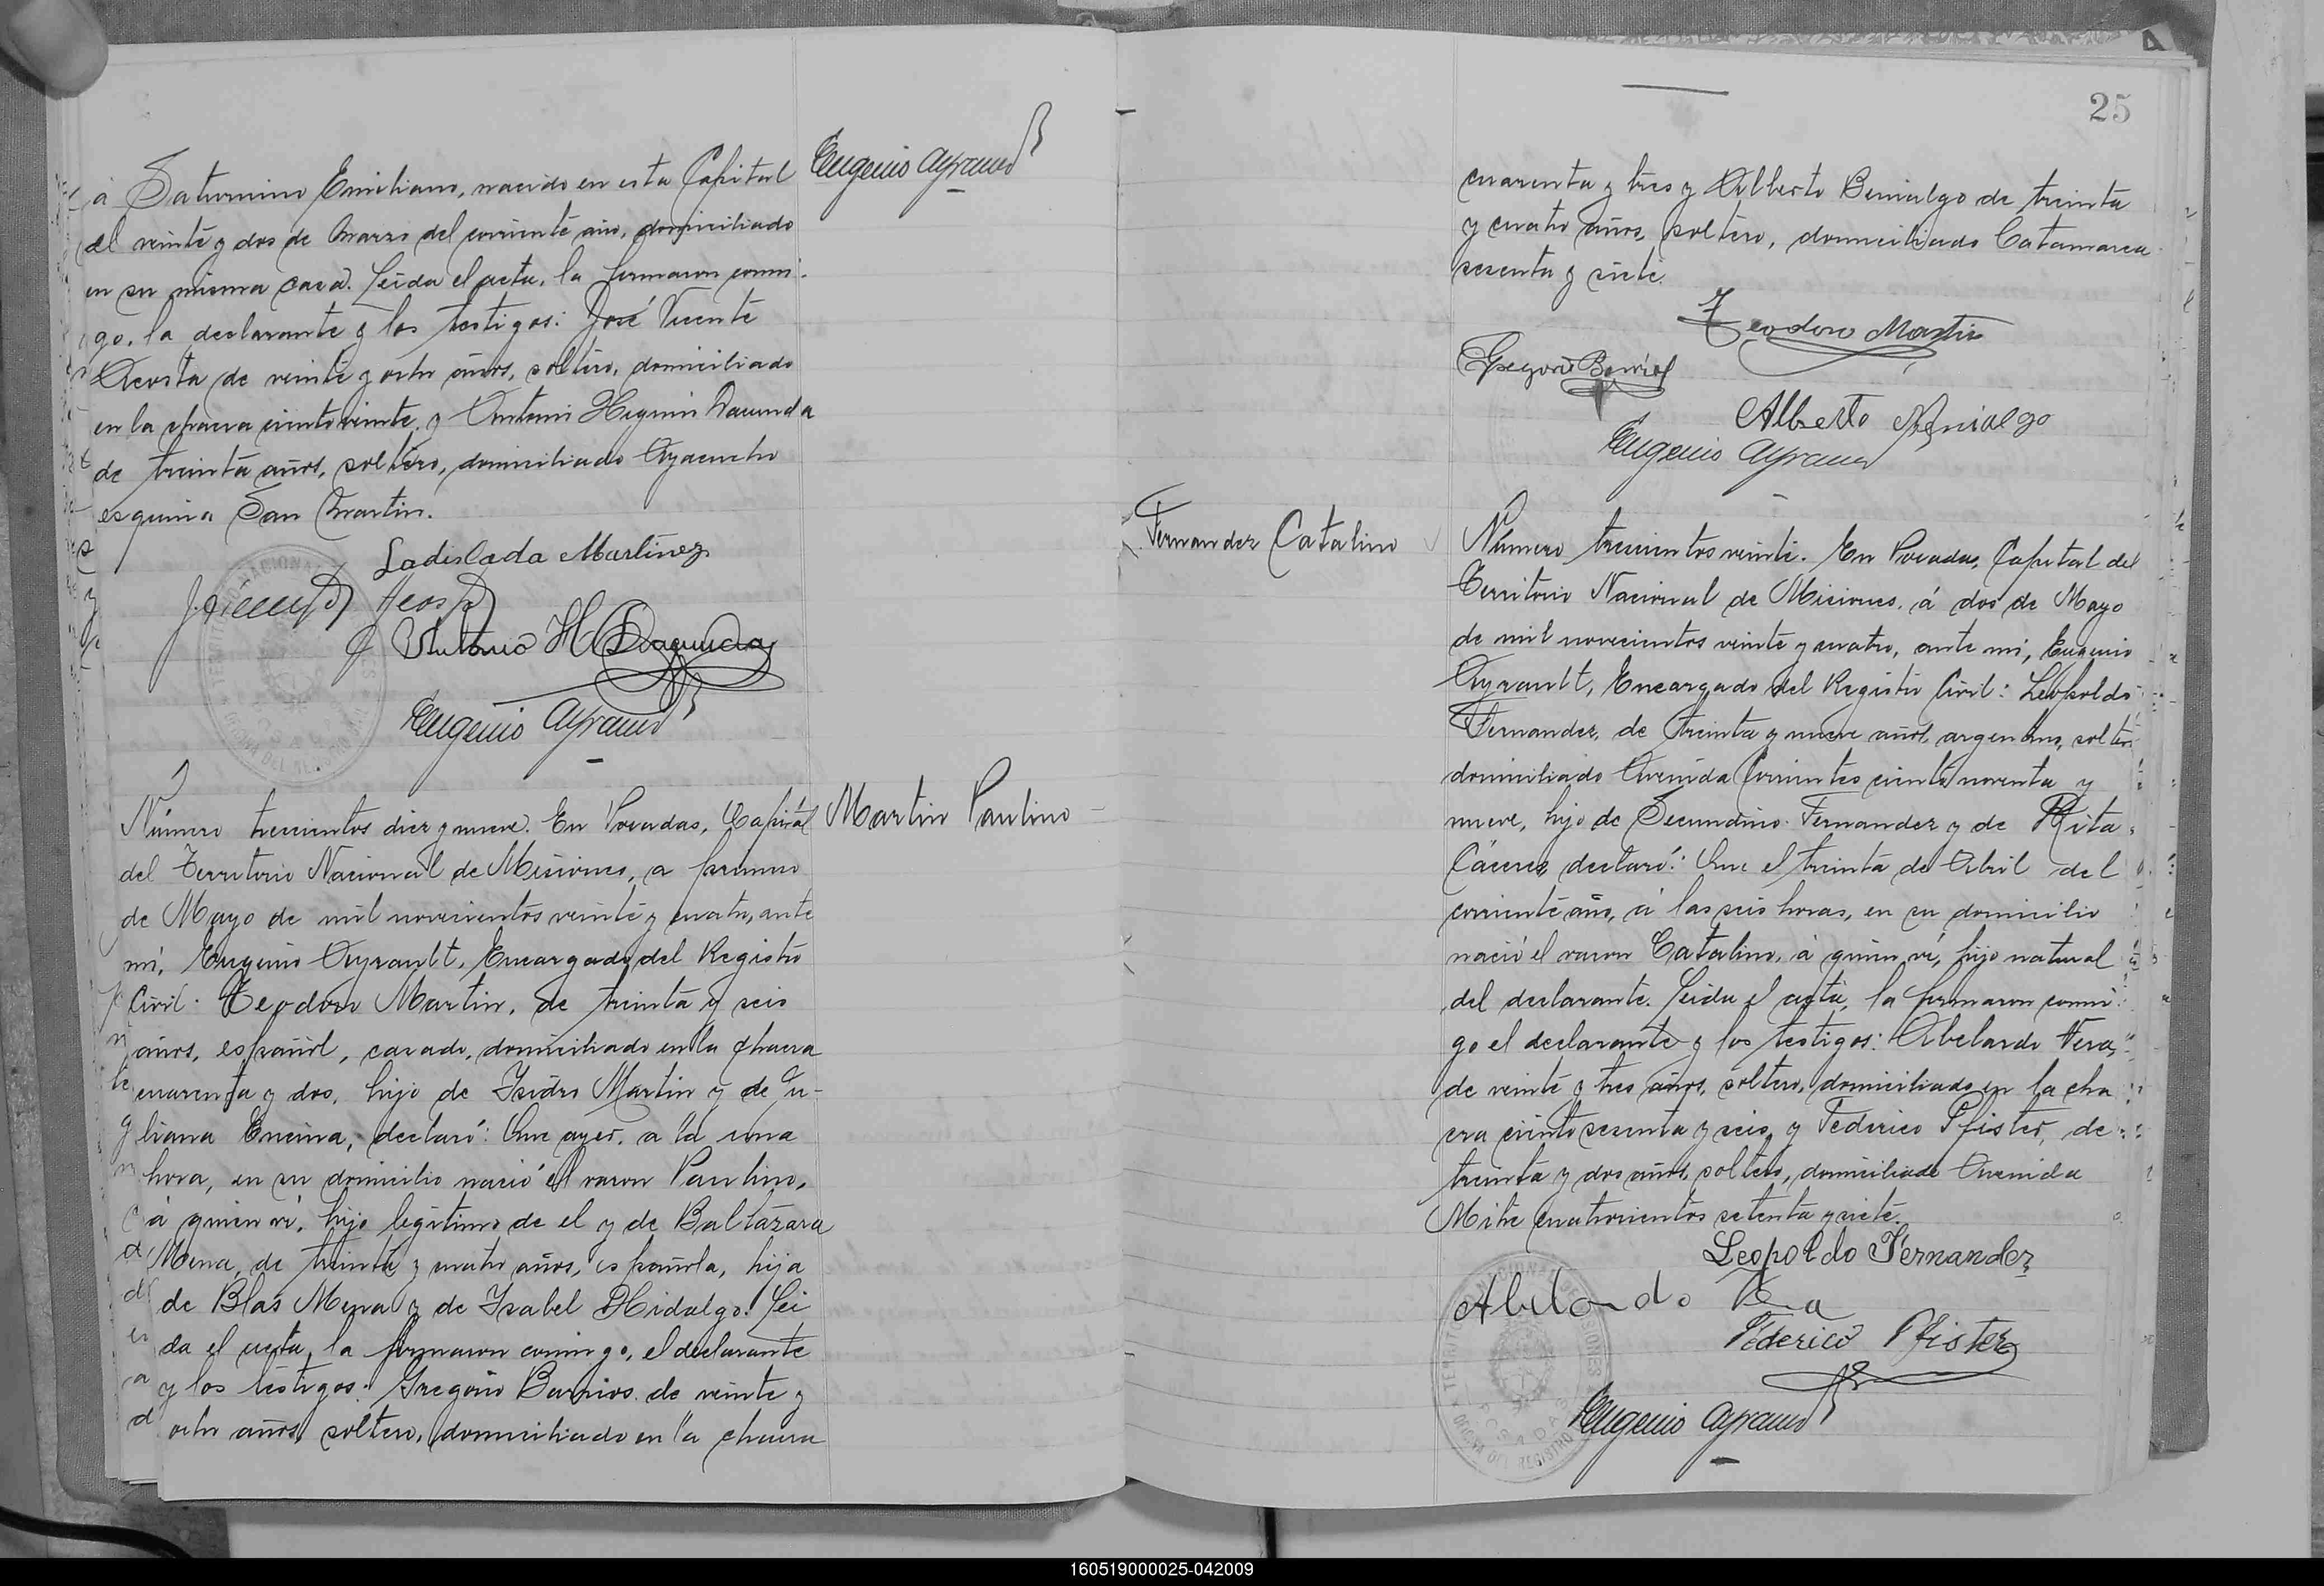 á Saturnino Emiliano, nacido en esta Capital
el veinte y dos de Marzo del corriente año, domiciliado
en su misma casa. Leida el acta, la firmaron conmi-
go, la declarante y los testigos: José Vicente
Acosta de veinte y ocho años, soltero, domiciliado
en la chacra ciento veinte, y Antonio Higinio Dacunda
de treinta años, soltero, domiciliado Ayacucho
esquina San Martin.
Eugenio Ayrault
Ladislada Martinez
J. Vicente Acosta
Antonio H Dacunda
Eugenio Ayrault
Martin Paulino
Número trescientos diez y nueve. En Posadas, Capital
del Territorio Nacional de Misiones, a primero
de Mayo de mil novecientos veinte y cuatro, ante
mi, Eugenio Ayrault, Encargado del Registro
Civil: Teodoro Martin, de treinta y seis
años, español, casado, domiciliado en la chacra
cuarenta y dos, hijo de Isidro Martin y de Ju-
liana Encina, declaró: Que ayer, a la una
hora, en su domicilio nació el varon Paulino,
á quien vi, hijo legitimo de el y de Baltázara
Mena, de treinta y cuatro años, española, hija
de Blas Mena y de Isabel Hidalgo. Lei
da el acta, la firmaron conmigo, el declarante
y los testigos: Gregorio Barrios de veinte y
ocho años, soltero, domiciliado en la chacra
25
cuarenta y tres y Alberto Benialgo de treinta
y cuatro años, soltero, domiciliado Catamarca
sesenta y siete.
Teodoro Martin
Gregorio Barrios
Alberto Benialgo
Eugenio Ayrault
Fernandez Catalino
Número trescientos veinte. En Posadas, Capital del
Territorio Nacional de Misiones, á dos de Mayo
de mil novecientos veinte y cuatro, ante mi, Eugenio
Ayrault, Encargado del Registro Civil: Leopoldo
Fernandez, de treinta y nueve años, argentino, soltero
domiciliado Avenida Corrientes ciento noventa y
nueve, hijo de Secundino Fernandez y de Rita
Cáceres, declaró: Que el treinta de Abril del
corriente año, á las seis horas, en su domicilio
nació el varon Catalino, á quien vi, hijo natural
del declarante. Leida el acta, la firmaron conmi
go el declarante y los testigos: Abelardo Vera,
de veinte y tres años, soltero, domiciliado en la cha
cra ciento sesenta y seis, y Federico Pfister, de
treinta y dos años, soltero, domiciliado Avenida
Mitre cuatrocientos setenta y siete.
Leopoldo Fernandez
Abelardo Vera
Federico Pfister
Eugenio Ayrault
160519000025-042009